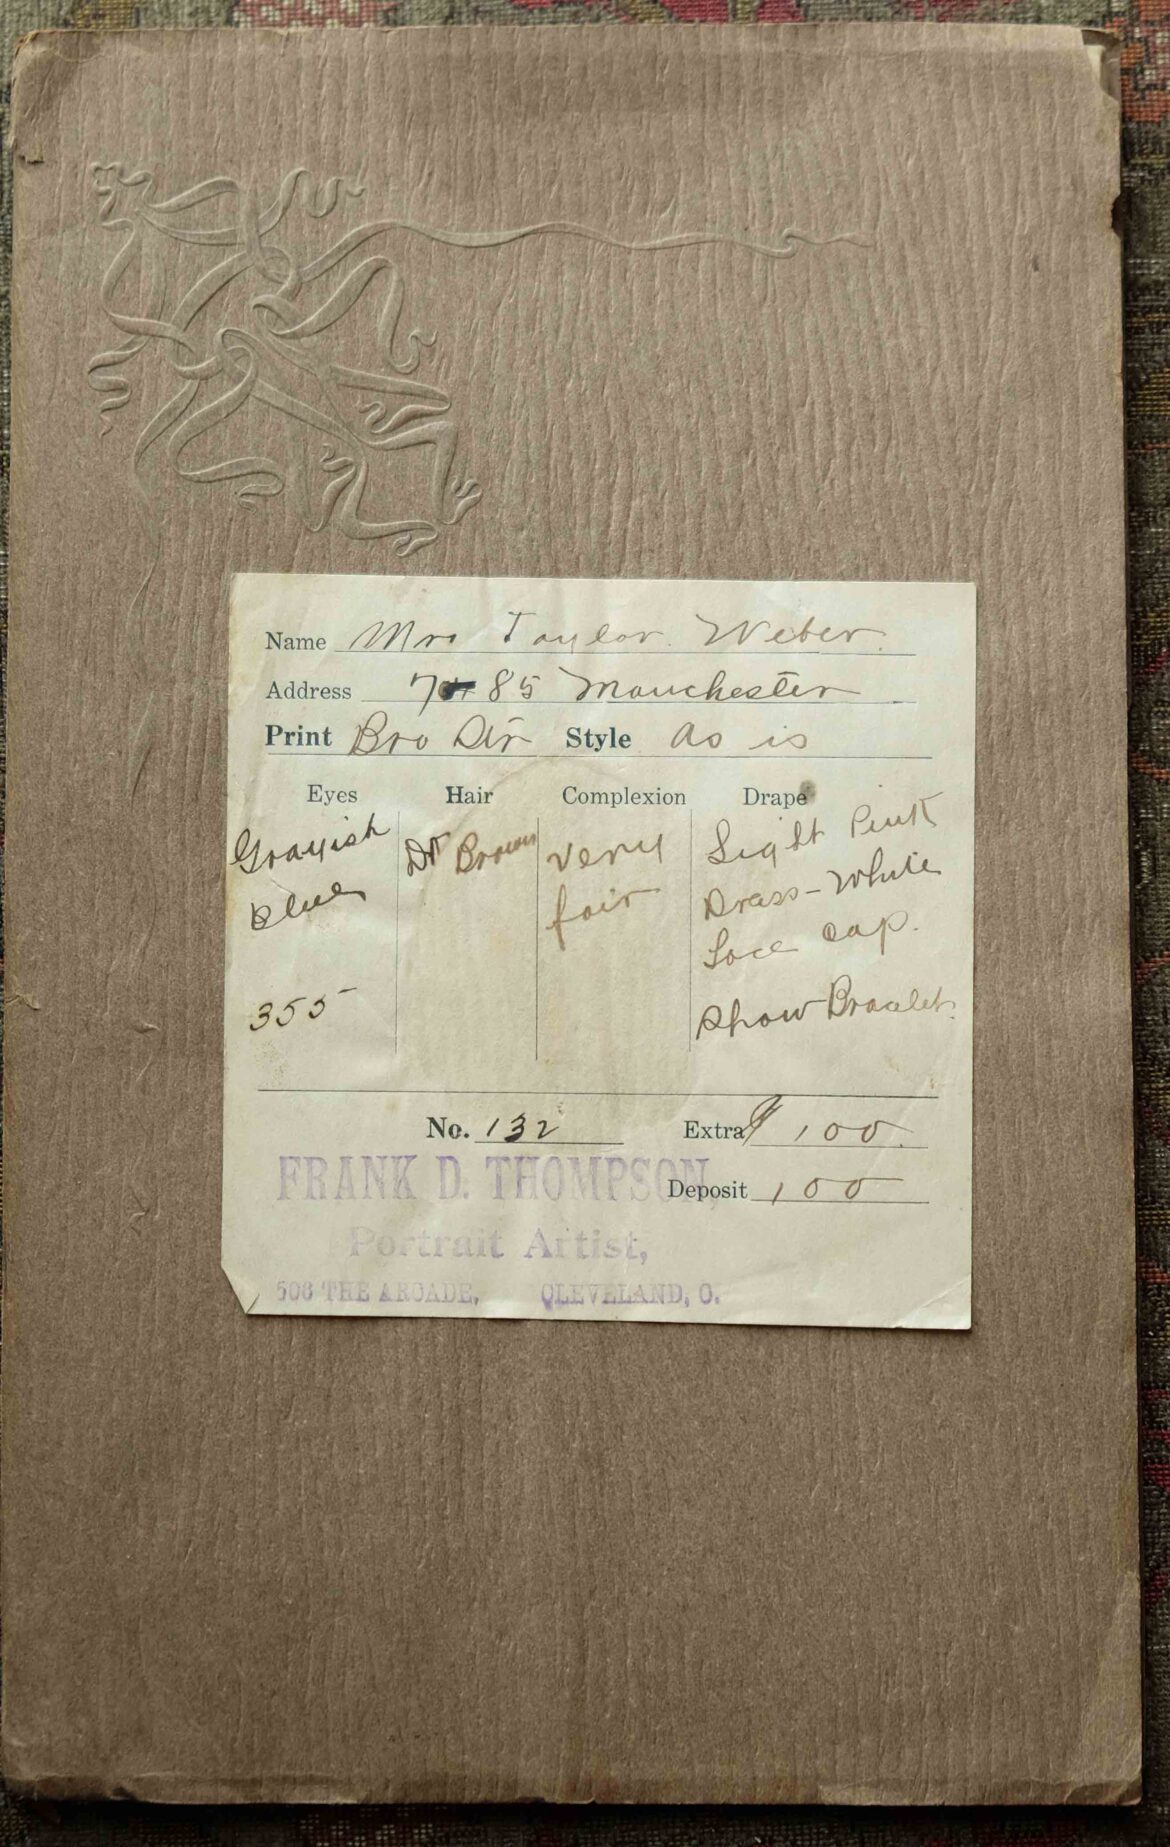 Name Mrs Taylor Weber.
Address 7485 Manchester
Print Bro Dir Style As is
Eyes Hair Complexion Drape
Grayish Blue
Dk Brown
very fair
Light Pink
Dress - White
Lace cap.
Show Bracelet.
355
No. 132 Extra $ 1 00.
FRANK D. THOMPSON,
Deposit 1 00
Portrait Artist,
508 THE ARCADE, CLEVELAND, O.